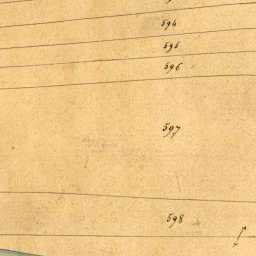 594
595
596
597
598